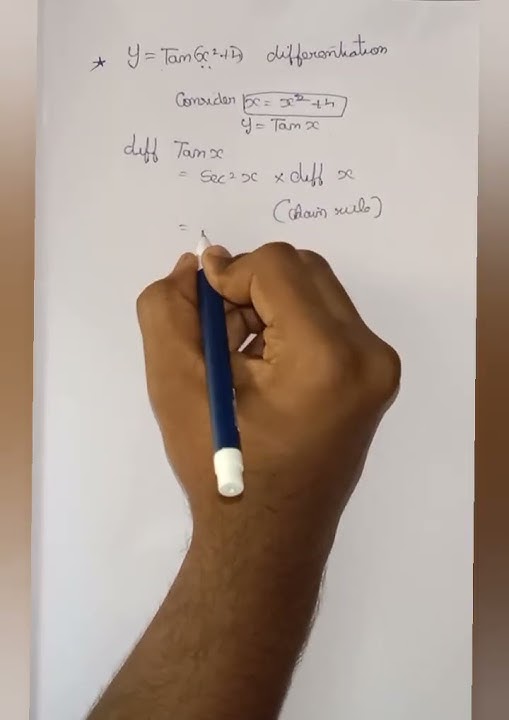 * y = Tan(x²+4) differentiation
Consider x = x²+4
y = Tan x
diff Tan x
= Sec²x × diff x
(chain rule)
=